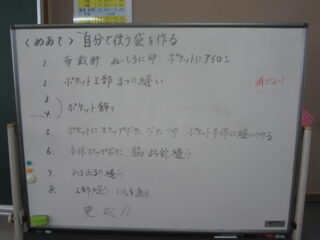 <めあて> 自分で使う袋を作る
1. 布裁断 ぬいしろに印 ポケットにアイロン
2. ポケット上部 まつり縫い
3
4. ポケット飾り
5. ポケットにスナップボタン ボタンつけ ポケット本体に縫いつける
6. 本体スナップボタン 脇 待針 縫う
7. あき止まり縫う
8. 上部縫う ひもを通す
完成!!